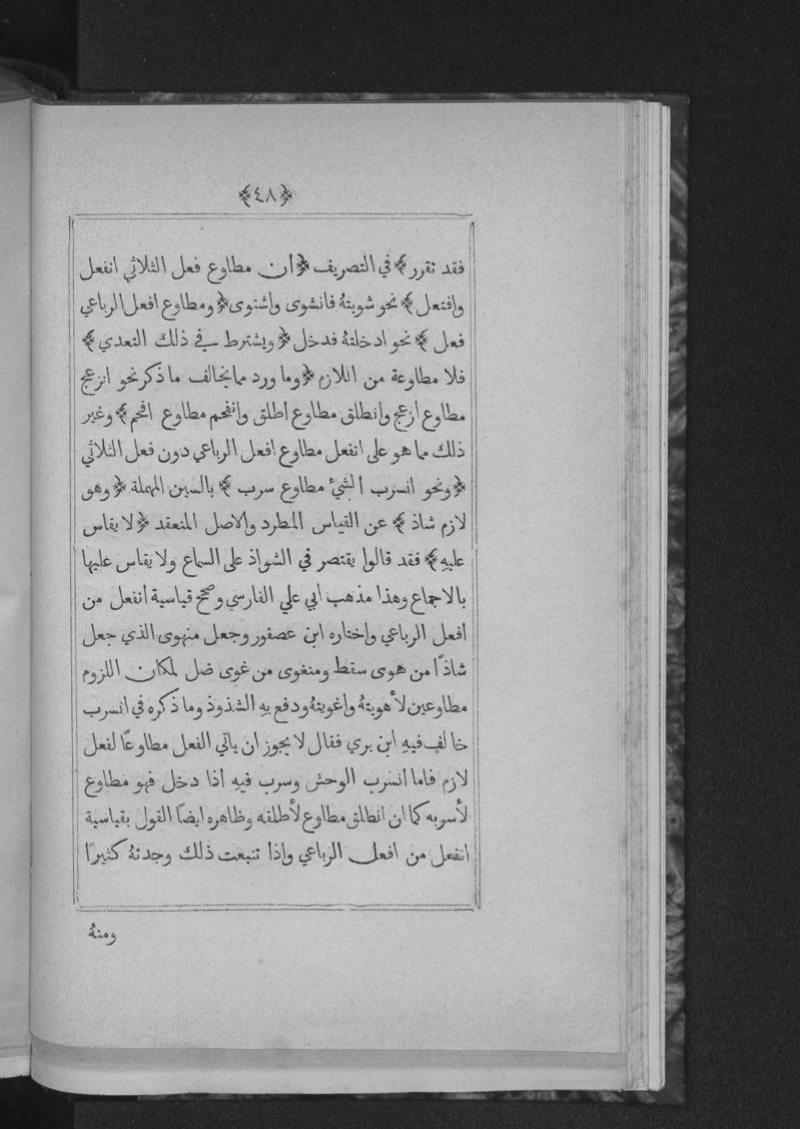 ﴿٤٨﴾
فقد تقرر﴾ في التصريف ﴿ان مطاوع فعل الثلاثي انفعل
وافتعل﴾ نحو شويتهُ فانشوى واشتوى ﴿ومطاوع افعل الرباعي
فعل﴾ نحو ادخلتهُ فدخل ﴿ويشترط في ذلك التعدي﴾
فلا مطاوعة من اللازم ﴿وما ورد مما يخالف ما ذكر نحو انزعج
مطاوع ازعج وانطلق مطاوع اطلق وانقحم مطاوع اقحم﴾ وغير
ذلك مما هو على انفعل مطاوع افعل الرباعي دون فعل الثلاثي
﴿ونحو انسرب الشيءُ مطاوع سرب﴾ بالسين المهملة ﴿وهو
لازم شاذ﴾ عن القياس المطرد والاصل المنعقد ﴿لا يقاس
عليهِ﴾ فقد قالوا يقتصر في الشواذ على السماع ولا يقاس عليها
بالاجماع وهذا مذهب ابي علي الفارسي وصحح قياسية انفعل من
افعل الرباعي واختاره ابن عصفور وجعل منهوى الذي جعل
شاذًا من هوى سقط ومنغوى من غوى ضل لمكان اللزوم
مطاوعين لأهويتهُ واغويتهُ ودفع بهِ الشذوذ وما ذكره في انسرب
خالف فيهِ ابن بري فقال لا يجوز ان ياتي الفعل مطاوعًا لفعل
لازم فاما انسرب الوحش وسرب فيهِ اذا دخل فهو مطاوع
لأسربه كما ان انطلق مطاوع لأطلقه وظاهره ايضًا القول بقياسية
انفعل من افعل الرباعي واذا تتبعت ذلك وجدتهُ كثيرًا
ومنهُ